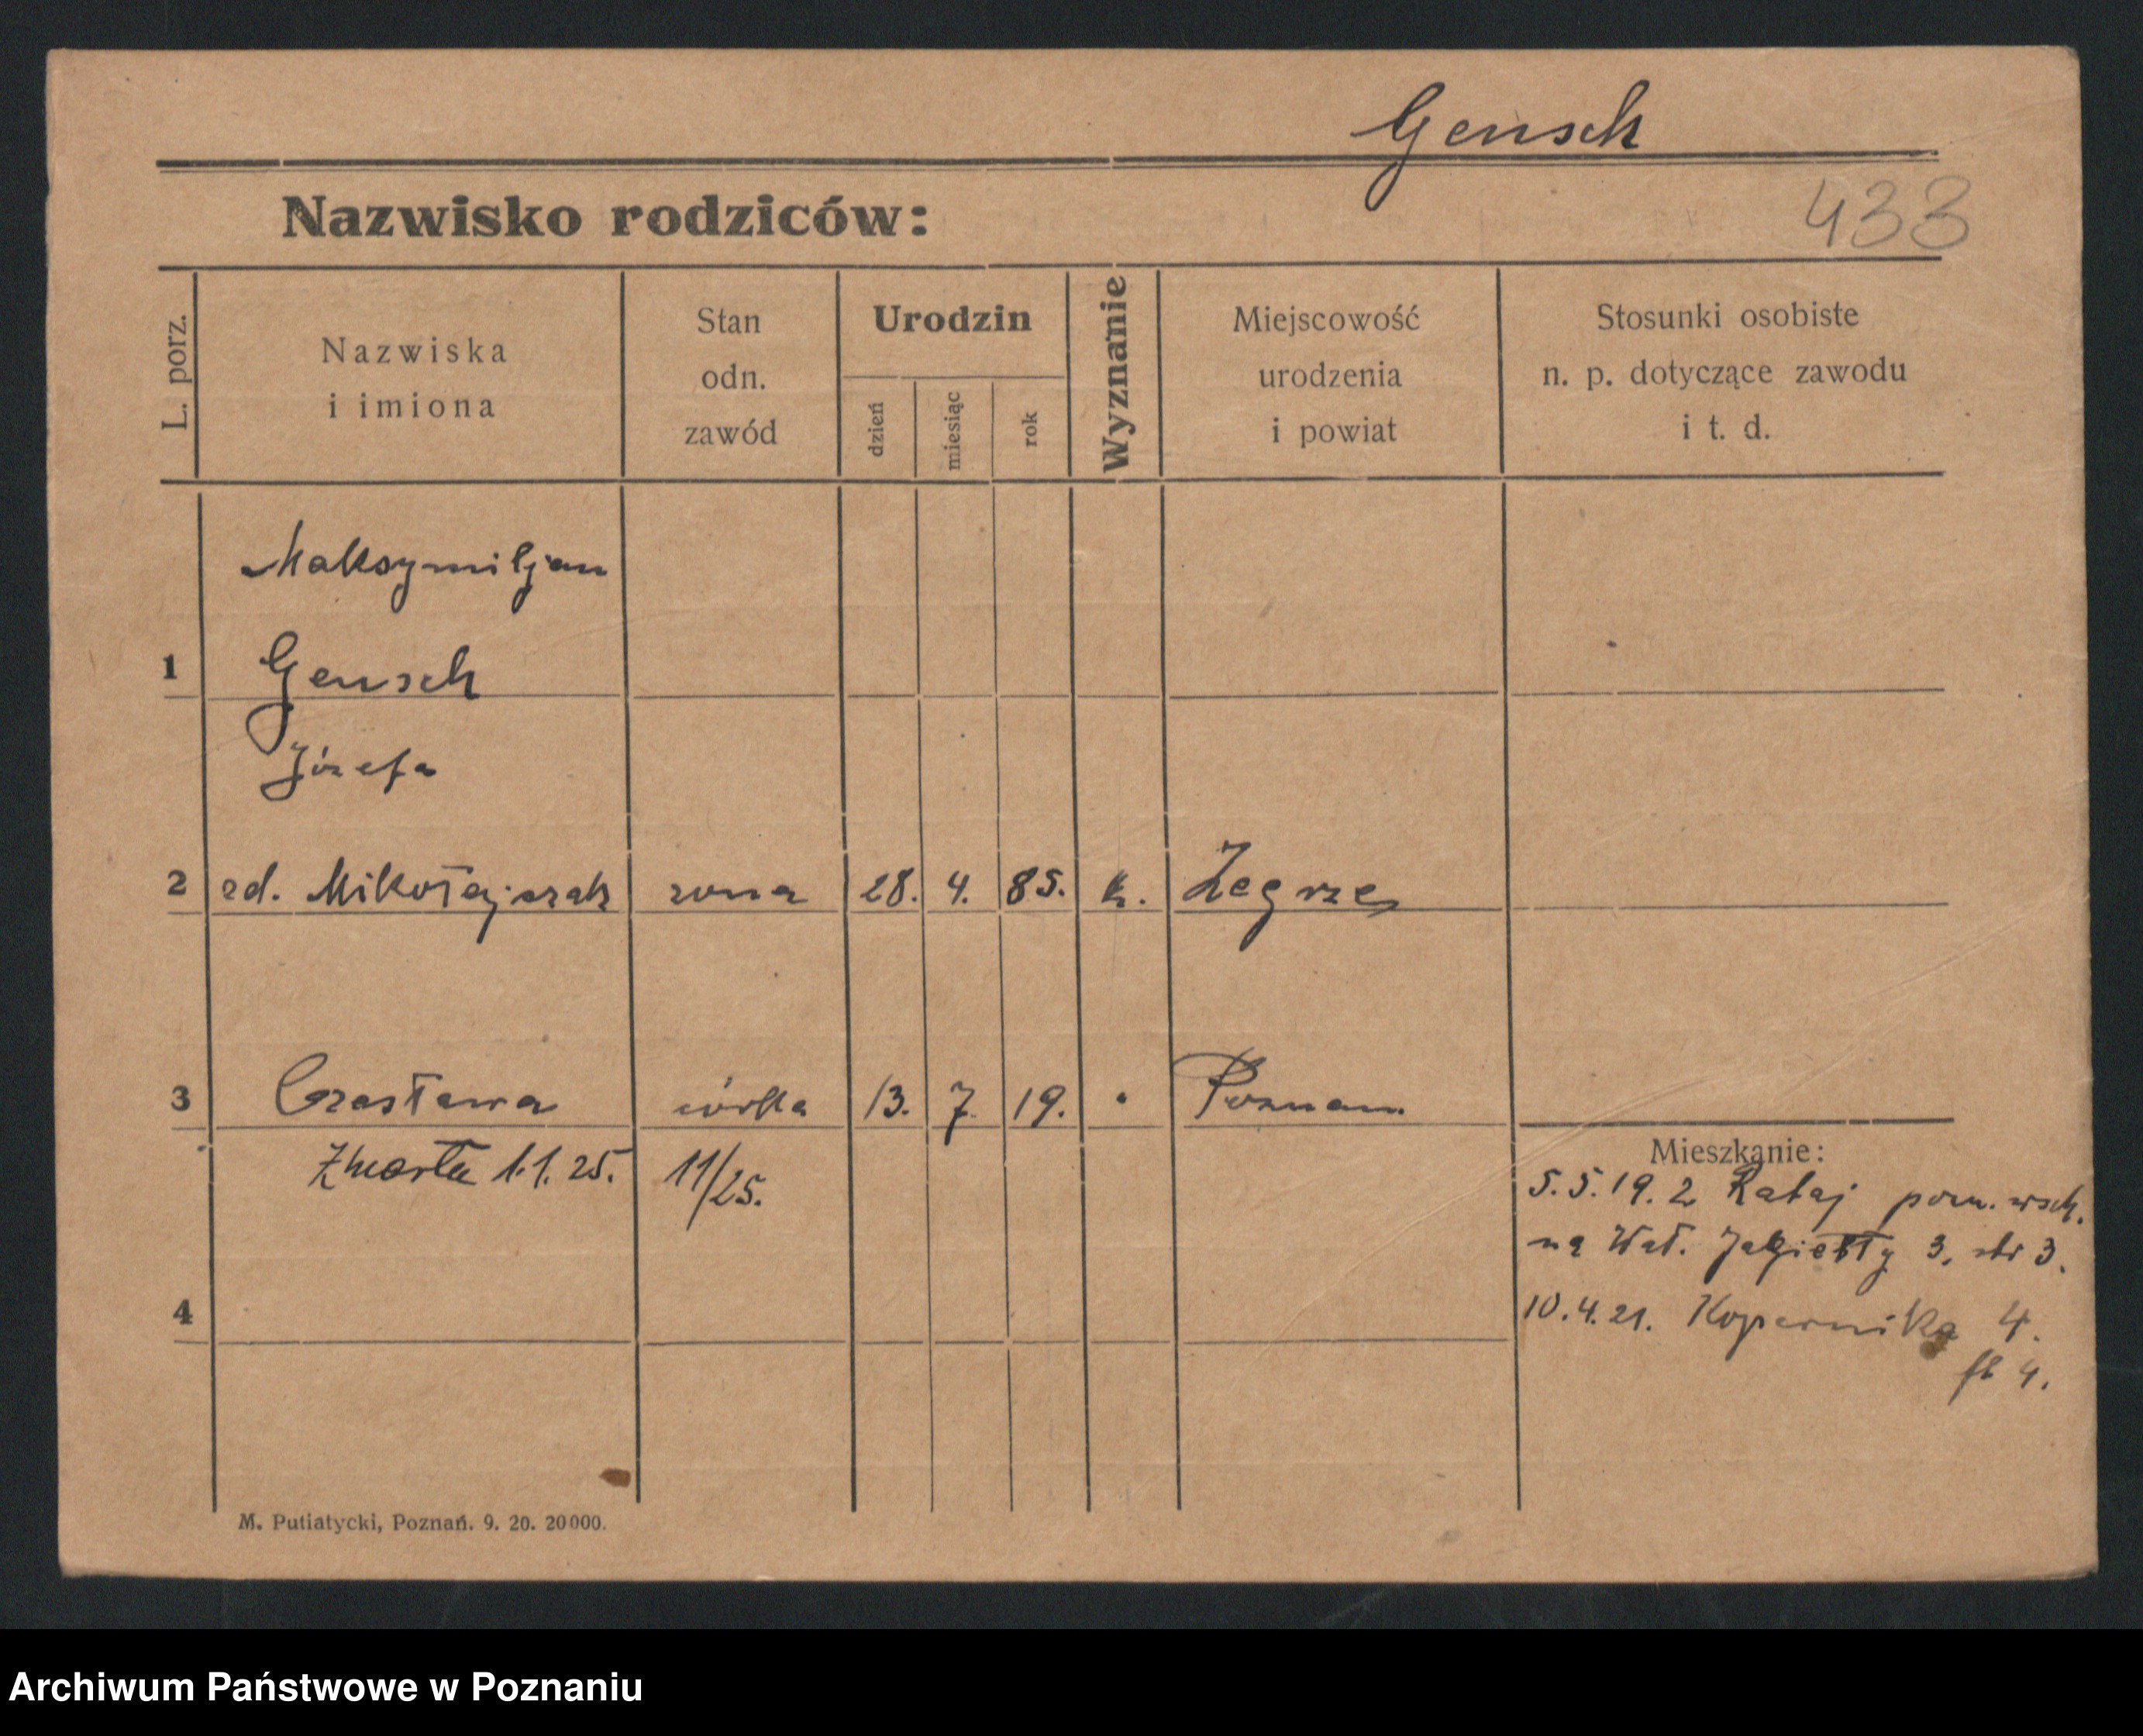 Gensch
Nazwisko rodziców:
433
L. porz.
Nazwiska
i imiona
Stan
odn.
zawód
Urodzin
dzień
miesiąc
rok
Wyznanie
Miejscowość
urodzenia
i powiat
Stosunki osobiste
n. p. dotyczące zawodu
i t. d.
Maksymiljan
1 Gensch
Józefa
2 zd. Mikołajczak żona 28. 4. 85. k. Żegrze
3 Czesława córka 13. 7. 19. Poznań
Zmarła 1.1.25. 11/25.
Mieszkanie:
5.5.19. z Rataj pozn. wsch.
na Wał. Jagiełły 3, 3.
10.4.21. Kopernika 4.
4.
4
M. Putiatycki, Poznań. 9. 20. 20000.
Archiwum Państwowe w Poznaniu